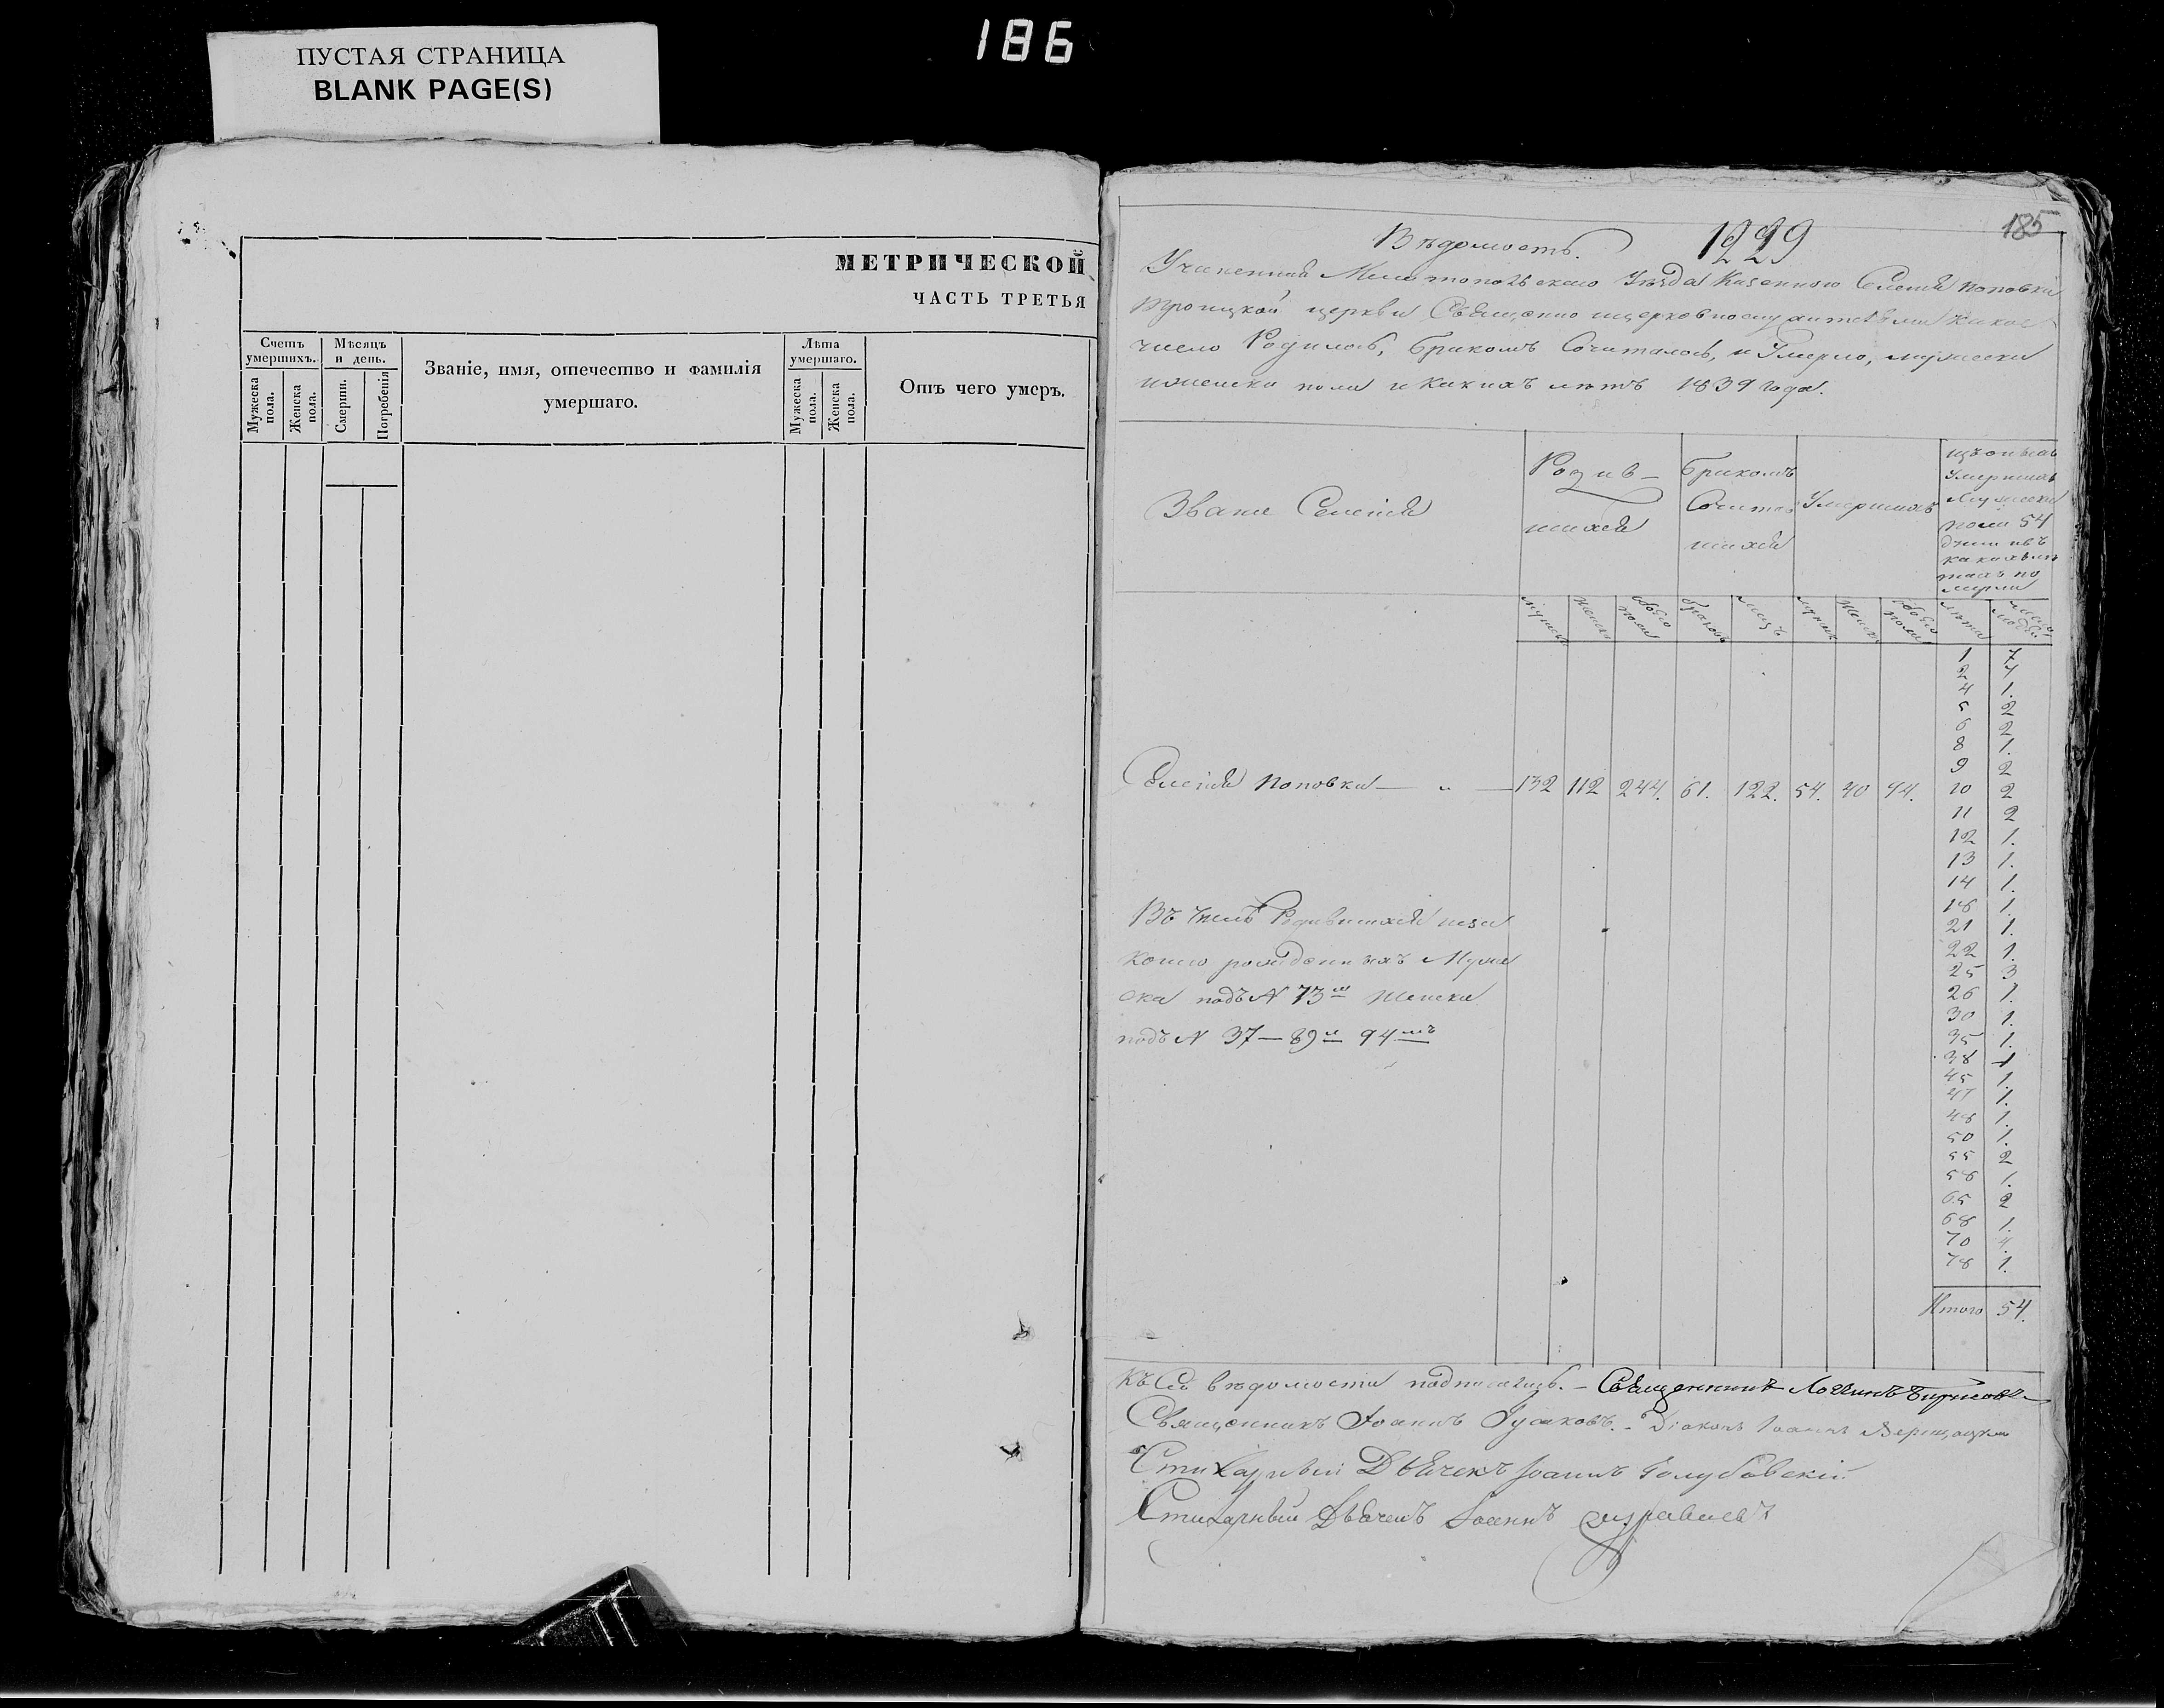 186
ПУСТАЯ СТРАНИЦА
BLANK PAGE(S)
МЕТРИЧЕСКОЙ
ЧАСТЬ ТРЕТЬЯ
Счетъ умершихъ.
Мужеска пола.
Женска пола.
Мѣсяцъ и день.
Смерти.
Погребенія
Званіе, имя, отечество и фамилія
умершаго.
Лѣта умершаго.
Мужеска пола.
Женска пола.
Отъ чего умеръ.
185
Вѣдомость. 1229
Учиненная Мелитопольскаго Уѣзда Казенного Селенія Поповки
троицкой церкви Священно ицерковнослужителями какое
число Родилось, бракомъ Сочиталось, и Умерло, мужеска
иженска пола и какихъ лѣтъ 1839 года.
Званіе Селенія
Родив-
шихся
бракомъ
Сочитав
шихся
Умершихъ
Умершихъ
Мужеска
пола 54
души въ
какихълѣ
тахъ по
мерли
мужеска
женска
обоего пола
браковъ
лицъ
мужеска
женска
обоего пола
лѣта
число людей
Селенія Поповки — „ — 132 112 244. 61. 122. 54. 40 94.
1 7
2 4
4 1.
5 2
6 2
8 1.
9 2
10 2
11 2
12 1.
13 1.
14 1.
18 1.
21 1.
22 1.
25 3
26 1.
30 1.
35 1.
38 1
45 1.
47 1.
48 1.
50 1.
55 2
58 1.
65 2
68 1.
70 4.
78 1.
Итого 54.
Въ числѣ Родившихся неза
конно рожденныхъ Муже
ска подъ N 73м Женска
подъ N 37 — 89и 94мъ
Къ Сей вѣдомости подписались. — Священникъ
Священникъ Іоаннъ Гусаковъ. — Діаконъ Іоаннъ
Стихарный Дьячекъ Іоаннъ Голубовскій
Стихарный Дьячекъ Іоаннъ